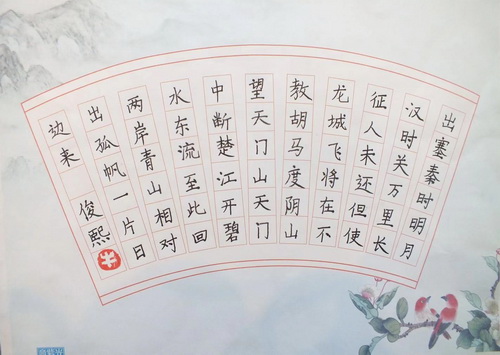 出塞秦时明月
汉时关万里长
征人未还但使
龙城飞将在不
教胡马度阴山
望天门山天门
中断楚江开碧
水东流至此回
两岸青山相对
出孤帆一片日
边来 俊熙